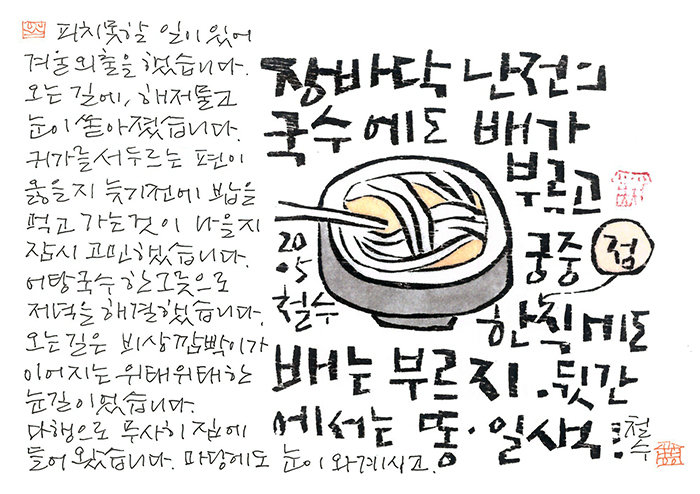 피치못할 일이 있어
겨울외출을 했습니다.
오는 길에, 해저물고
눈이 쏟아졌습니다.
귀가를 서두르는 편이
옳을지 늦기전에 밥을
먹고 가는것이 나을지
잠시 고민했습니다.
어탕국수 한그릇으로
저녁을 해결했습니다.
오는길은 비상깜빡이가
이어지는 위태위태한
눈길이었습니다.
다행으로 무사히 집에
들어 왔습니다. 마당에도 눈이 와계시고.
장바닥 난전의
국수에도 배가
부르고
궁중 점
한 식에도
배는 부르지. 뒷간
에서는 똥. 일색
20
05
철수
철수